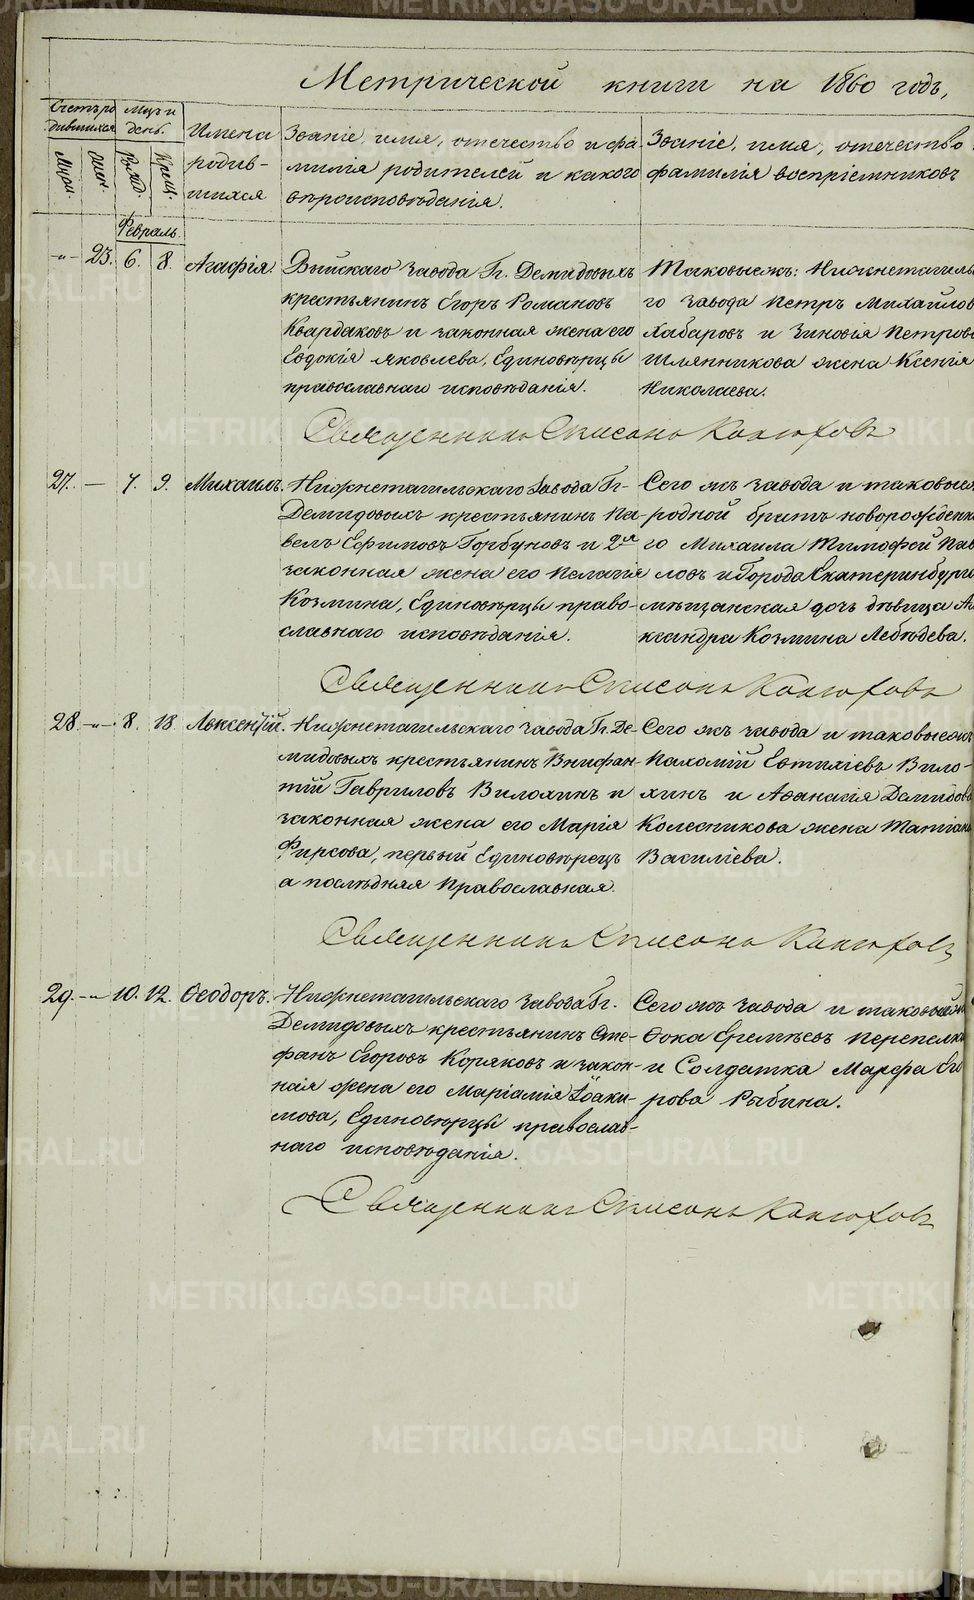 Метрической книги на 1860 годъ,
Счетъ ро
дившихся
Мцъ и
день.
Муж.
Жен.
Рожд.
Крещ.
Имена
родив-
шихся
Званіе, имя, отечество и фа
милія родителей и какого
вѣроисповѣданія.
Званіе, имя, отечество
фамилія воспріемниковъ
Февраль.
-"- 23. 6. 8. Агафія.
Выйскаго завода Гг. Демидовыхъ
крестьянинъ Егоръ Романовъ
Квардаковъ и законная жена его
Евдокія Яковлева, Единовѣрцы
православнаго исповѣданія.
Таковыежъ: Нижнетагиль
го завода Петръ Михайлов
Хабаровъ и Зиновія Петров
Шляпникова жена Ксенія
Николаева.
Священникъ Кактосовъ
27. — 7. 9. Михаилъ.
Нижнетагильскаго завода Гг-
Демидовыхъ крестьянинъ Па-
велъ Ефимовъ Горбуновъ и 2я
законная жена его Пелагія
Козмина, Единовѣрцы право-
славнаго исповѣданія.
Сего жъ завода и таковые
родной братъ новорожденн
го Михаила Тимофей Пав
ловъ и Города Екатеринбурга
мѣщанская дочь дѣвица Ал
ксандра Козмина Лебѣдева.
Священникъ
28. -"- 8. 18. Авксентій.
Нижнетагильскаго завода Гг. Де-
мидовыхъ крестьянинъ Внифан-
тій Гавриловъ Вилохинъ и
законная жена его Марія
Фирсова, первый Единовѣрецъ
а послѣдняя Православная.
Сего жъ завода и таковыежъ
Пахомій Евтихіевъ Вило-
хинъ и Афанасія Демидова
Колесникова жена Татіана
Василіева.
Священникъ
29. -"- 10. 12. Ѳеодоръ.
Нижнетагильскаго завода Гг.
Демидовыхъ крестьянинъ Сте-
фанъ Егоровъ Коряковъ и закон-
ная жена его Маріамія Іоаки-
мова, Единовѣрцы православ-
наго исповѣданія.
Сего жъ завода и таковый
Ѳока Еремѣевъ Перепелк
и Солдатка Марфа Его
рова Рыбина.
Священникъ
METRIKI.GASO-URAL.RU